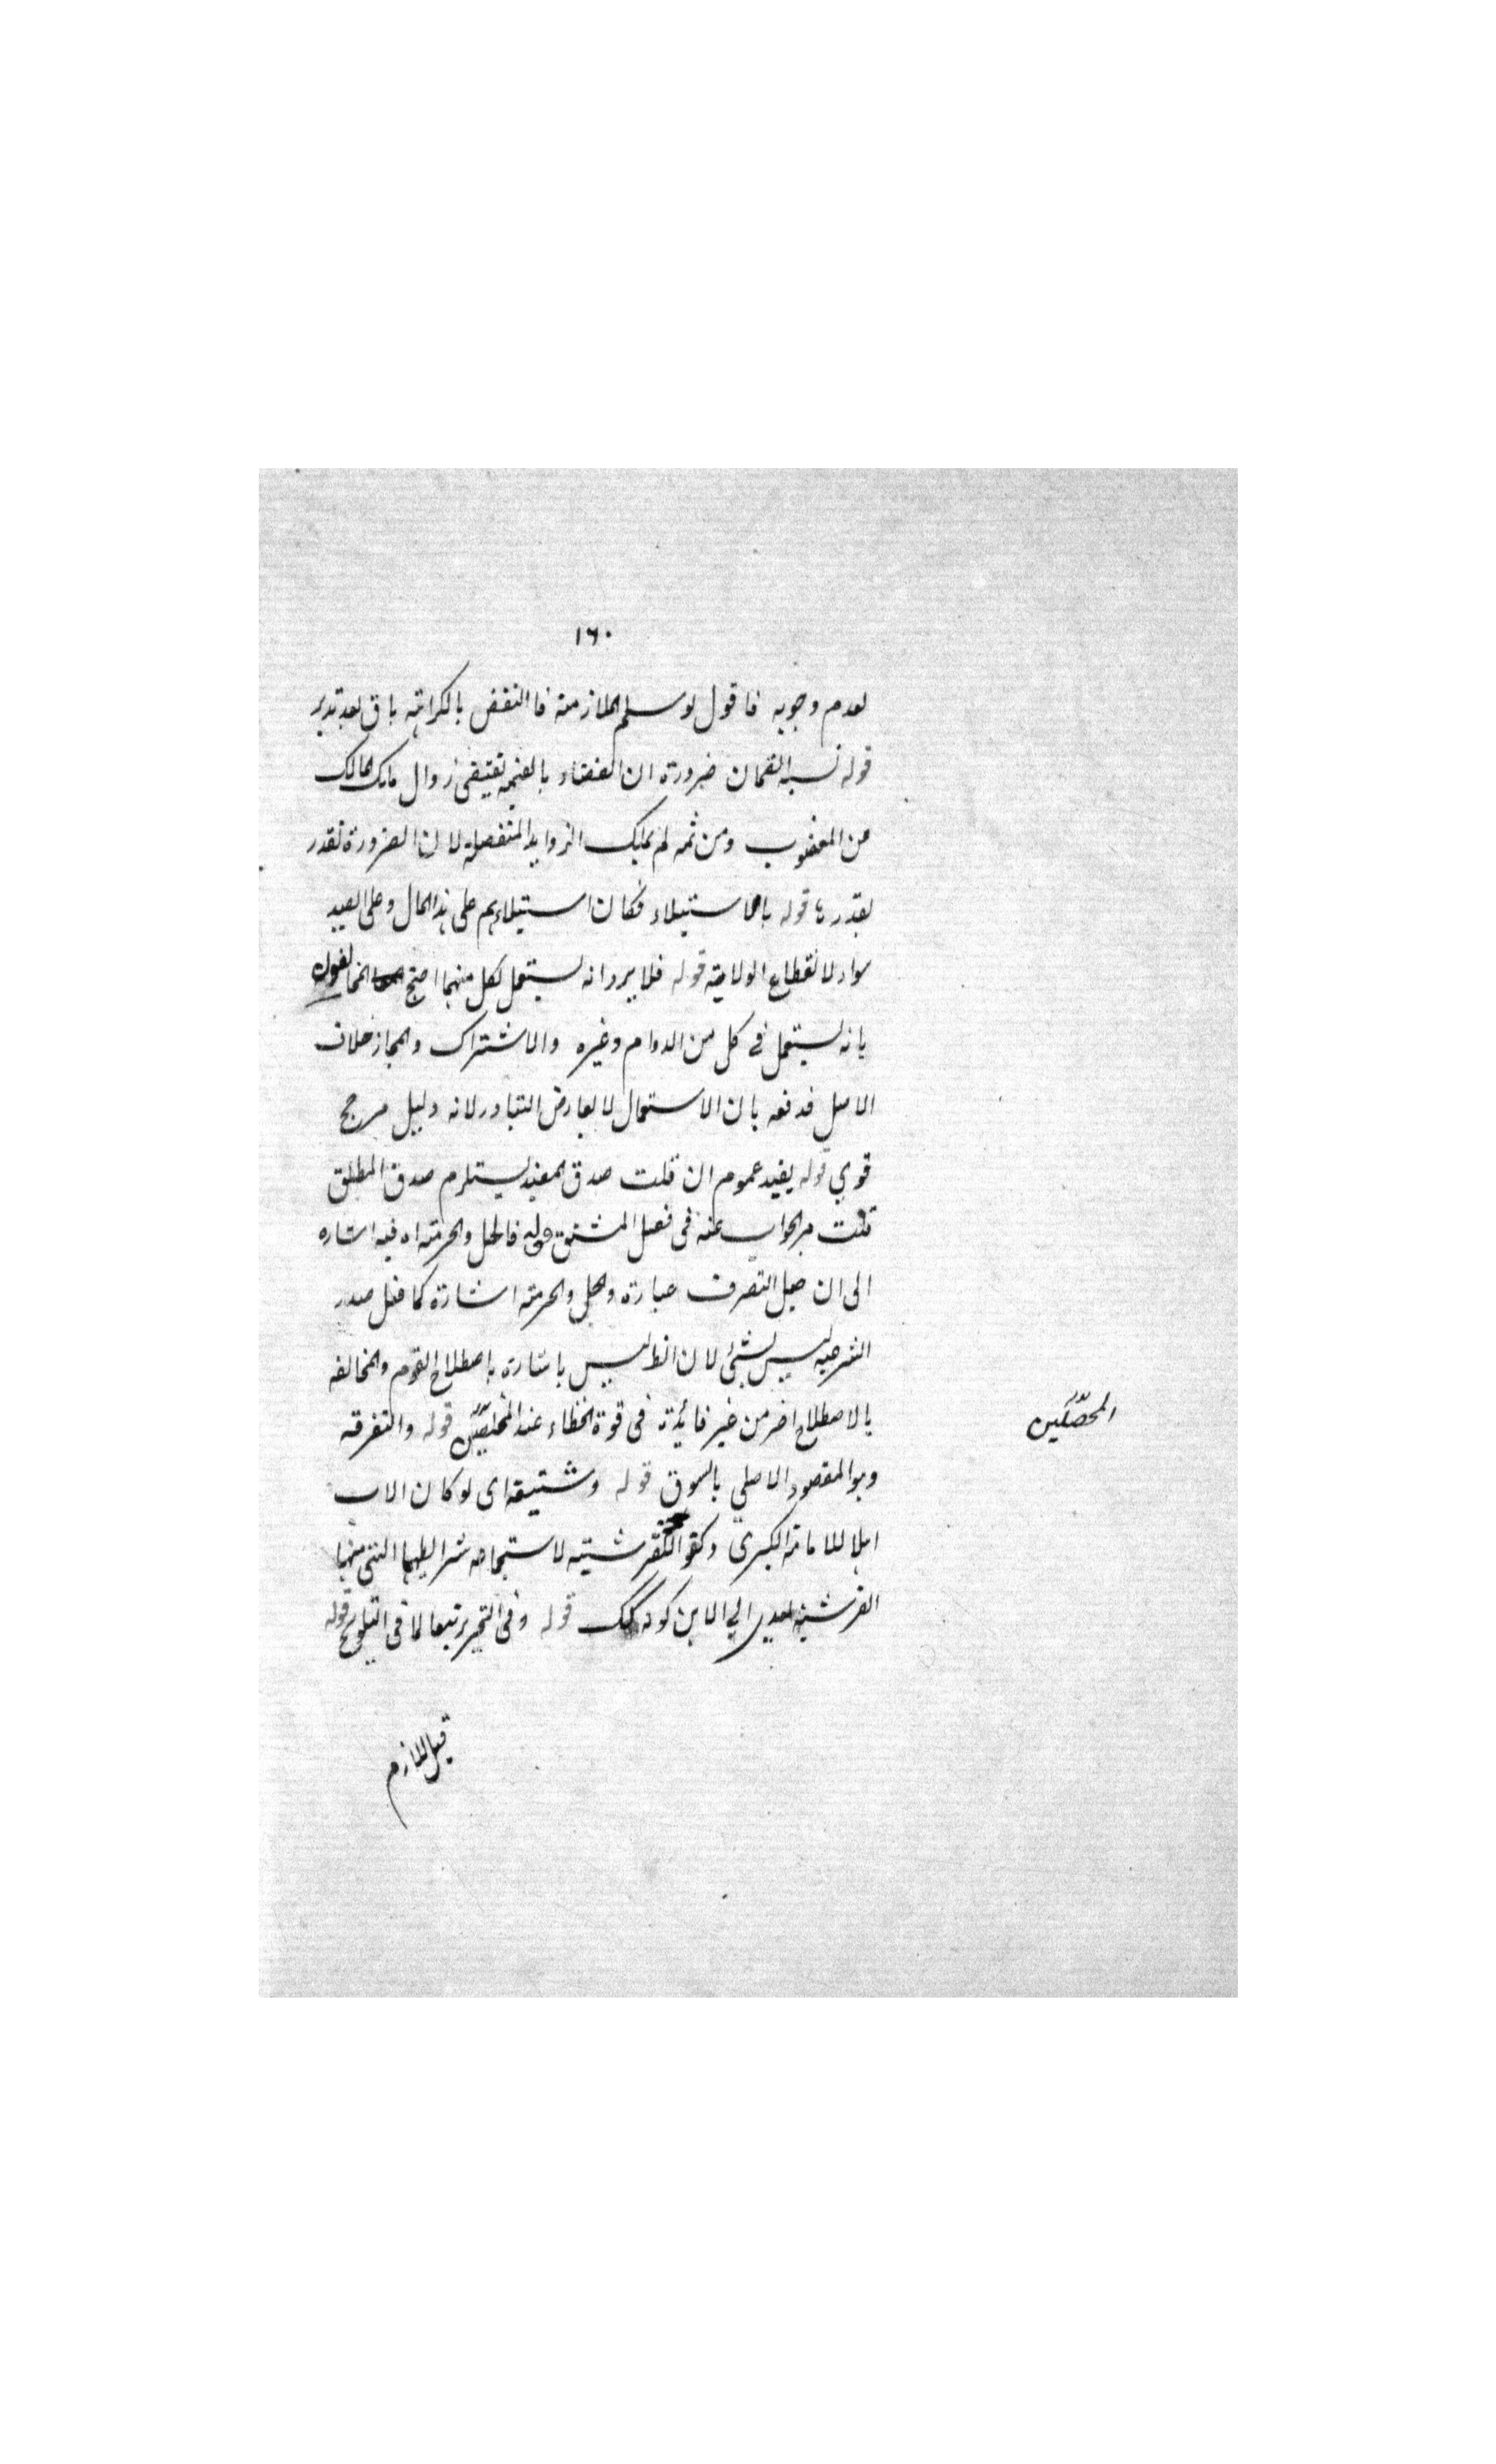 ١٦٠
لعدم وجوبه فاقول لو سلم الملازمة فالنقض بالكراهة باق بعد تدبر
قوله نسبه الضمان ضرورة ان القضاء بالقيمة تقتضى زوال ملك المالك
من المغصوب ومن ثمه لم يملك الزوايد المنفصلة لان الضرورة تقدر
بقدرها قوله بالاستيلاء فكان استيلاءهم على هذا المال وعلى الصيد
سواء لانقطاع الولاية قوله فلا يرد انه يستعمل لكل منهما احتج المخالف لقوله
بانه يستعمل في كل من الدوام وغيره والاشتراك والمجاز خلاف
الاصل فدفعه بان الاستعمال لا يعارض التبادر لانه دليل مرجح
قوي قوله يفيد عموم ان قلت صدق المقيد يستلزم صدق المطلق
قلت مر الجواب عنه فى فصل المشتق قوله فالحل والحرمة اه فيه اشاره
الى ان حل التصرف عبارة والحل والحرمة اشارة كما فعل صدر
الشرعيه ليس بشئ لان الظ ليس باشارة باصطلاح القوم والمخالفه
بالاصطلاح اخر من غير فائدة فى قوة الخطاء عند المخلصين قوله والتفرقه
وهو المقصود الاصلي بالسوق قوله وشتيقه اى لو كان الاب
اهلا للامامة الكبرى وكفو القرشيته لاستجماعه شرايطها التى منها
القرشيه تعدى الي الابن كونه كك قوله وفى التحرير تبعا لما فى التلويح قوله
المحصّلين
قيل اللازم